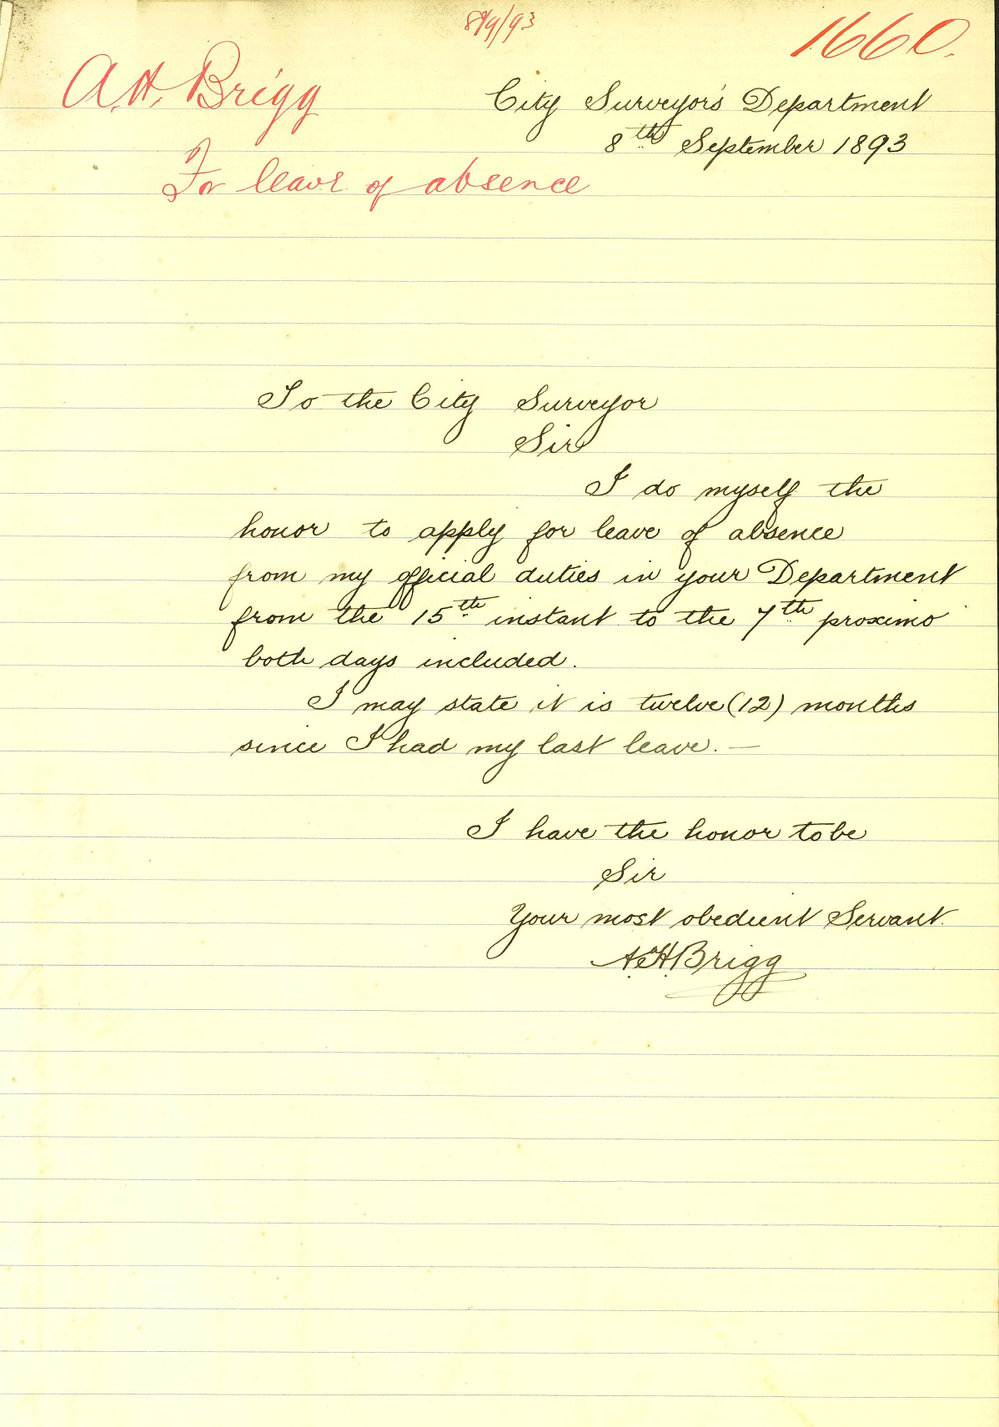 8/9/93
1660.
A.H. Brigg
For leave of absence
City Surveyor's Department
8th September 1893
To the City Surveyor
Sir
I do myself the
honor to apply for leave of absence
from my official duties in your Department
from the 15th instant to the 7th proximo
both days included.
I may state it is twelve (12) months
since I had my last leave. —
I have the honor to be
Sir
Your most obedient Servant.
A.H. Brigg